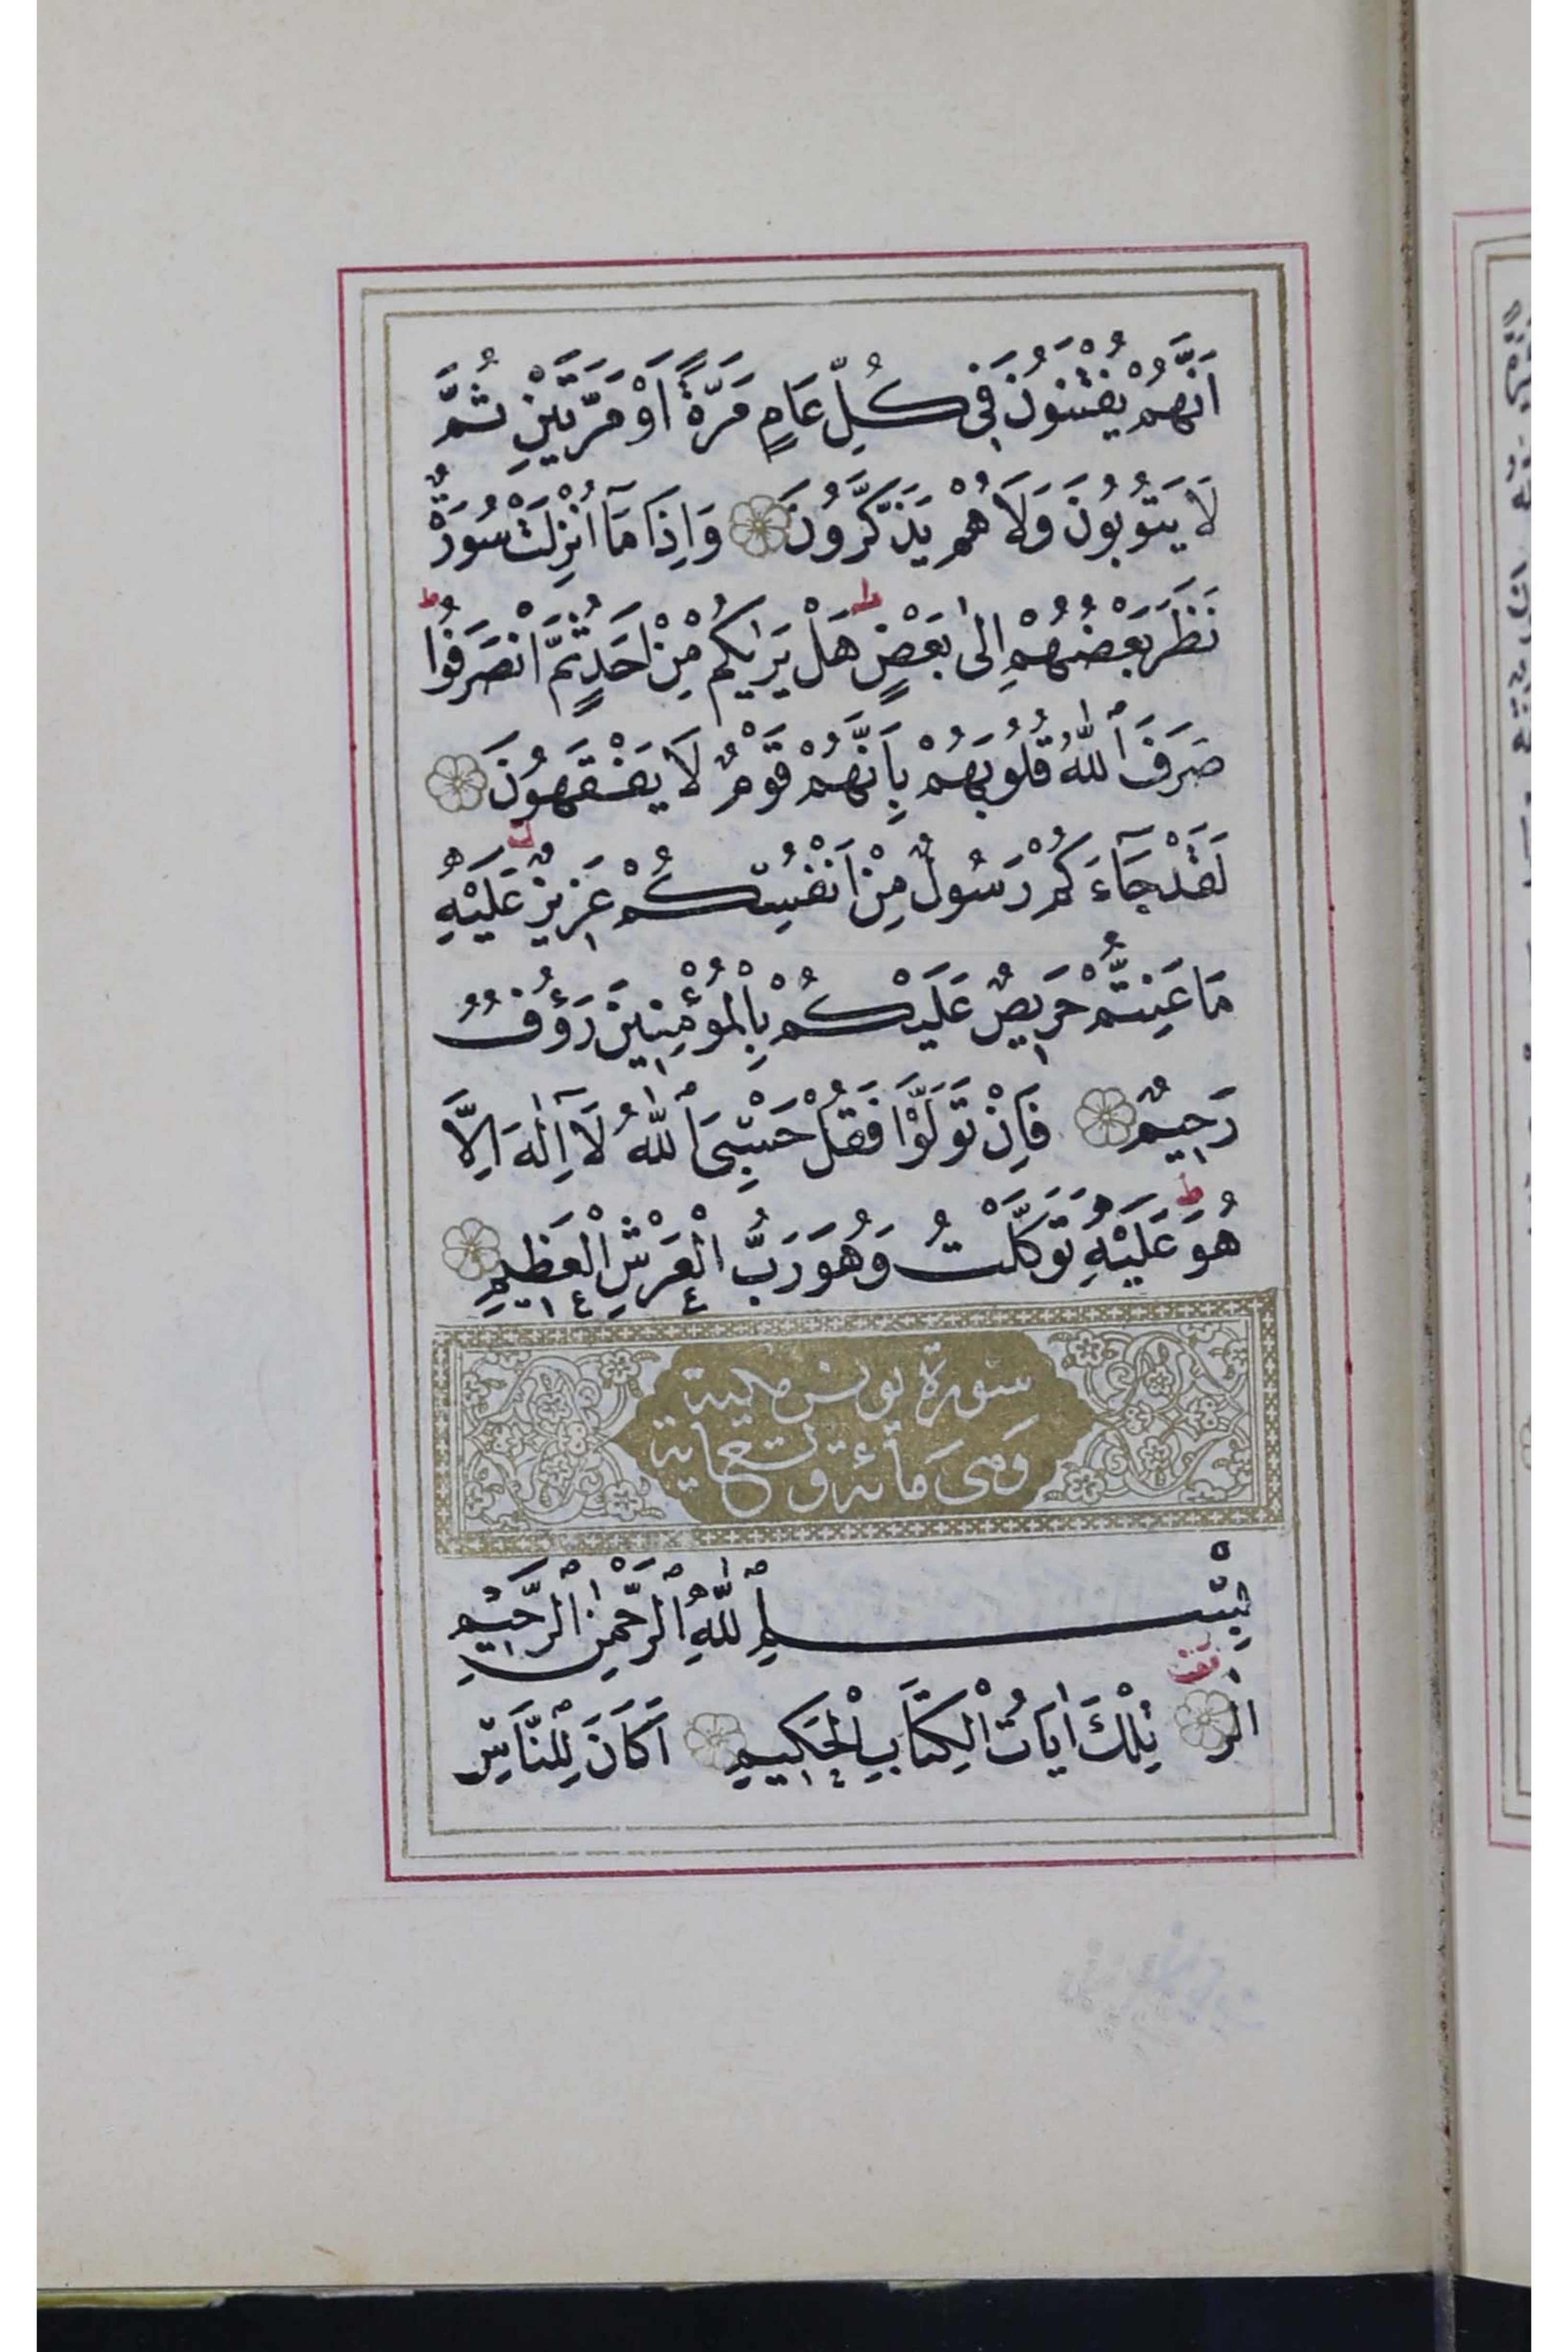 اَنَّهُمْ يُفْتَنُونَ فِي كُلِّ عَامٍ مَرَّةً اَوْ مَرَّتَيْنِ ثُمَّ
لَا يَتُوبُونَ وَلَا هُمْ يَذَّكَّرُونَ وَاِذَا مَٓا اُنْزِلَتْ سُورَةٌ
نَظَرَ بَعْضُهُمْ اِلٰى بَعْضٍ ط هَلْ يَرٰيكُمْ مِنْ اَحَدٍ ثُمَّ انْصَرَفُوا ط
صَرَفَ اللّٰهُ قُلُوبَهُمْ بِاَنَّهُمْ قَوْمٌ لَا يَفْقَهُونَ
لَقَدْ جَٓاءَكُمْ رَسُولٌ مِنْ اَنْفُسِكُمْ عَزِيزٌ عَلَيْهِ
مَا عَنِتُّمْ حَرِيصٌ عَلَيْكُمْ بِالْمُؤْمِنِينَ رَؤُفٌ
رَحِيمٌ فَاِنْ تَوَلَّوْا فَقُلْ حَسْبِيَ اللّٰهُ لَٓا اِلٰهَ اِلَّا
هُوَ ط عَلَيْهِ تَوَكَّلْتُ وَهُوَ رَبُّ الْعَرْشِ الْعَظِيمِ
سورة يونس مكية
وهى مائة وتسع اية
بِسْمِ اللّٰهِ الرَّحْمٰنِ الرَّحِيمِ
الٰر تِلْكَ اٰيَاتُ الْكِتَابِ الْحَكِيمِ اَكَانَ لِلنَّاسِ